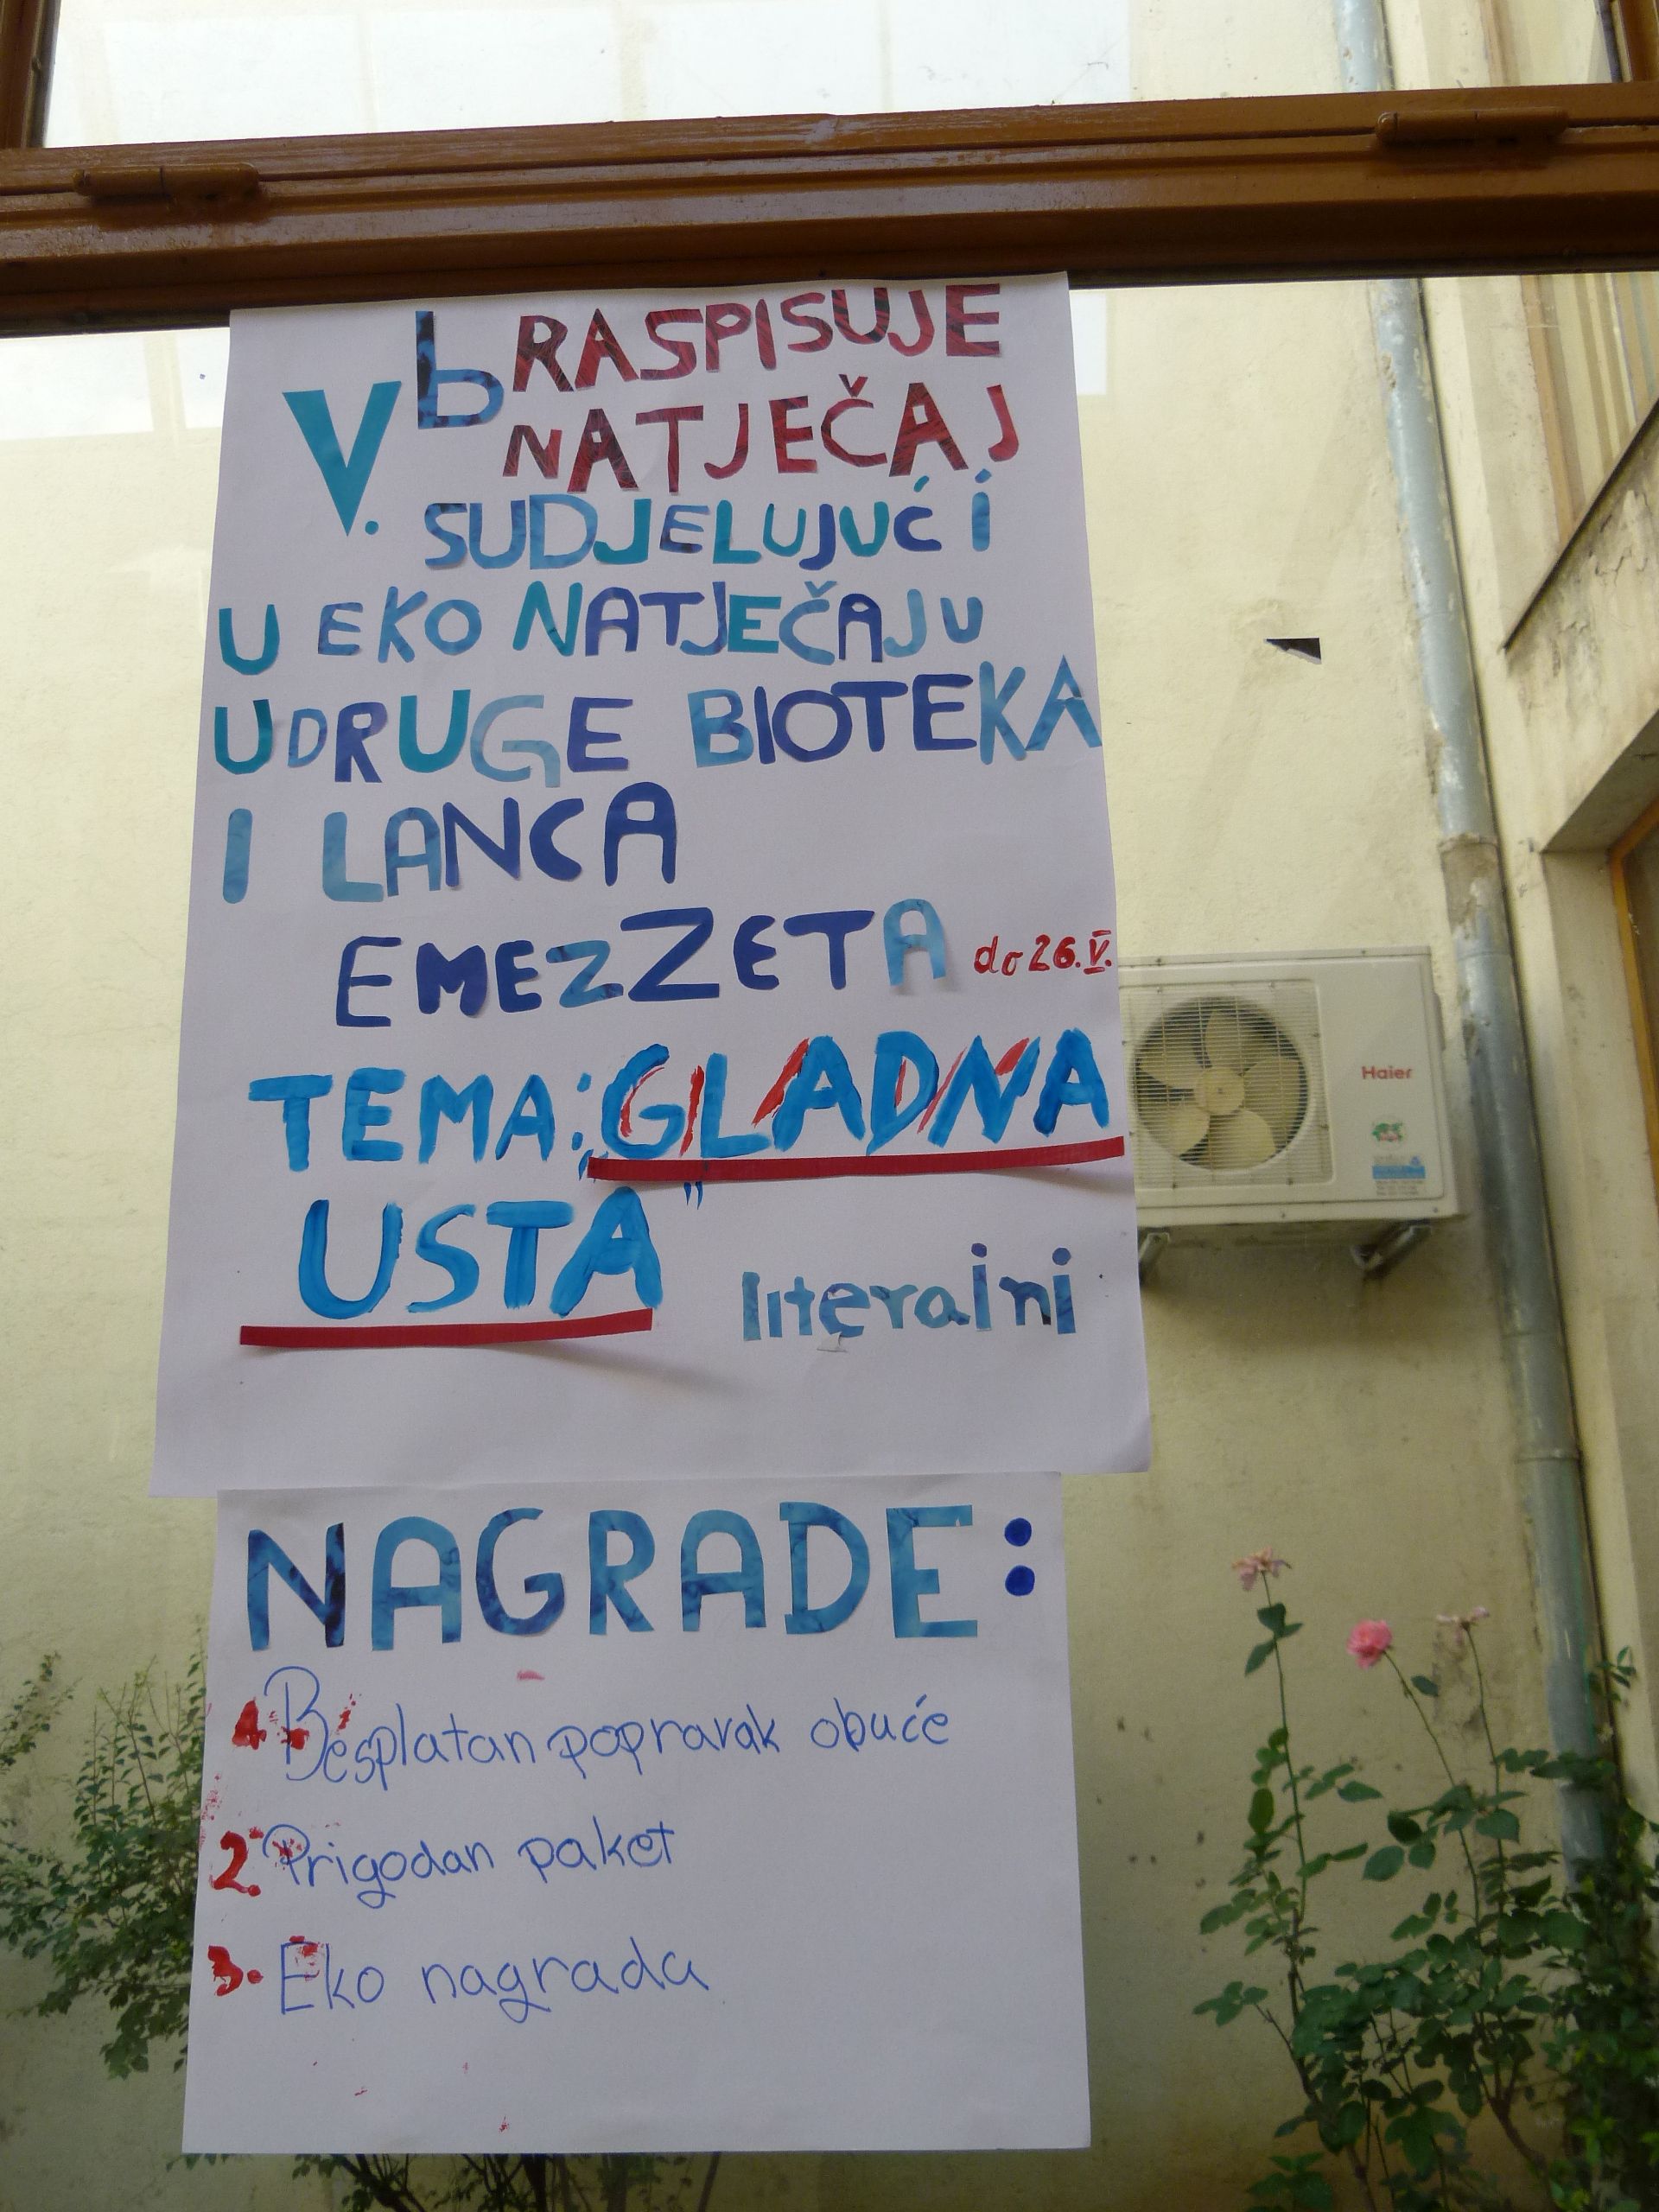 V. b RASPISUJE
NATJEČAJ
SUDJELUJUĆI
U EKO NATJEČAJU
UDRUGE BIOTEKA
I LANCA
EMEZZETA do 26.V.
TEMA: „GLADNA
USTA"
literalni
Haier
NAGRADE:
1. Besplatan popravak obuće
2. Prigodan paket
3. Eko nagrada